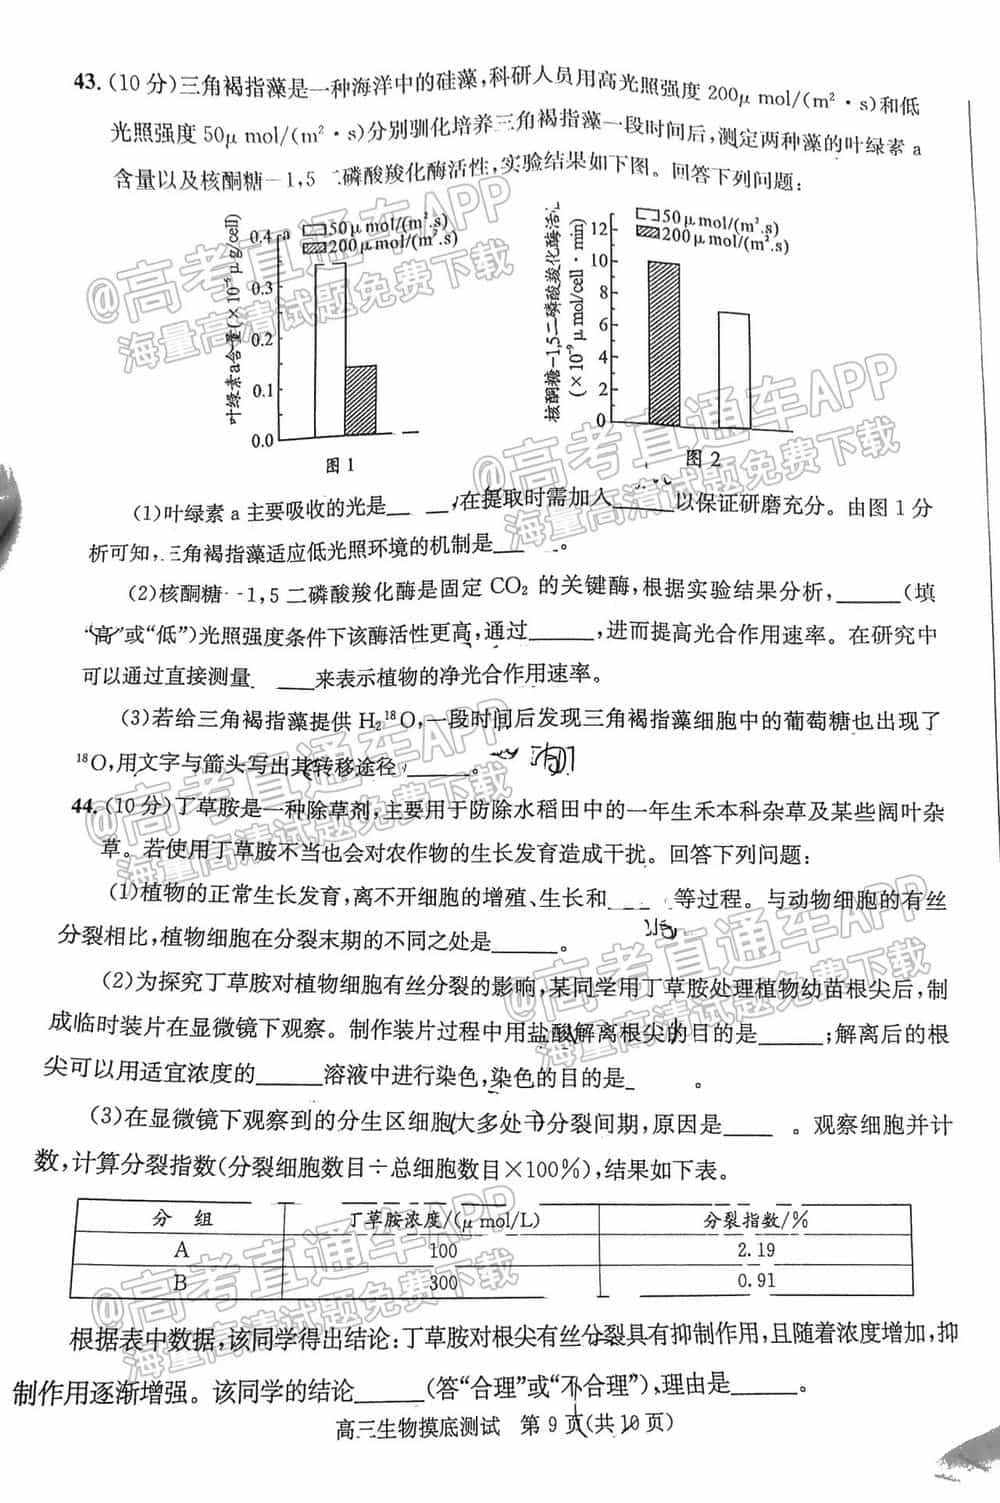 43. (10 分)三角褐指藻是一种海洋中的硅藻,科研人员用高光照强度 200μ mol/(m²·s)和低
光照强度 50μ mol/(m²·s)分别驯化培养三角褐指藻一段时间后,测定两种藻的叶绿素 a
含量以及核酮糖-1,5 二磷酸羧化酶活性,实验结果如下图。回答下列问题:
叶绿素a含量(×10⁻⁵μg/cell)
a
50μ mol/(m².s)
200μ mol/(m².s)
0.4
0.3
0.2
0.1
0.0
图 1
核酮糖-1,5二磷酸羧化酶活
(×10⁻⁹μ mol/cell·min)
50μ mol/(m².s)
200μ mol/(m².s)
12
10
8
6
4
2
0
图 2
(1)叶绿素 a 主要吸收的光是____,在提取时需加入____以保证研磨充分。由图 1 分
析可知,三角褐指藻适应低光照环境的机制是____。
(2)核酮糖-1,5 二磷酸羧化酶是固定 CO₂ 的关键酶,根据实验结果分析,____(填
“高”或“低”)光照强度条件下该酶活性更高,通过____,进而提高光合作用速率。在研究中
可以通过直接测量____来表示植物的净光合作用速率。
(3)若给三角褐指藻提供 H₂¹⁸O,一段时间后发现三角褐指藻细胞中的葡萄糖也出现了
¹⁸O,用文字与箭头写出其转移途径____。
44. (10 分)丁草胺是一种除草剂,主要用于防除水稻田中的一年生禾本科杂草及某些阔叶杂
草。若使用丁草胺不当也会对农作物的生长发育造成干扰。回答下列问题:
(1)植物的正常生长发育,离不开细胞的增殖、生长和____等过程。与动物细胞的有丝
分裂相比,植物细胞在分裂末期的不同之处是____。
(2)为探究丁草胺对植物细胞有丝分裂的影响,某同学用丁草胺处理植物幼苗根尖后,制
成临时装片在显微镜下观察。制作装片过程中用盐酸解离根尖的目的是____;解离后的根
尖可以用适宜浓度的____溶液中进行染色,染色的目的是____。
(3)在显微镜下观察到的分生区细胞大多处于分裂间期,原因是____。观察细胞并计
数,计算分裂指数(分裂细胞数目÷总细胞数目×100%),结果如下表。
分 组 丁草胺浓度/(μ mol/L) 分裂指数/%
A 100 2.19
B 300 0.91
根据表中数据,该同学得出结论:丁草胺对根尖有丝分裂具有抑制作用,且随着浓度增加,抑
制作用逐渐增强。该同学的结论____(答“合理”或“不合理”),理由是____。
高三生物摸底测试 第 9 页(共 10 页)
@高考直通车APP
海量高清试题免费下载
@高考直通车APP
海量高清试题免费下载
@高考直通车APP
海量高清试题免费下载
@高考直通车APP
海量高清试题免费下载
@高考直通车APP
海量高清试题免费下载